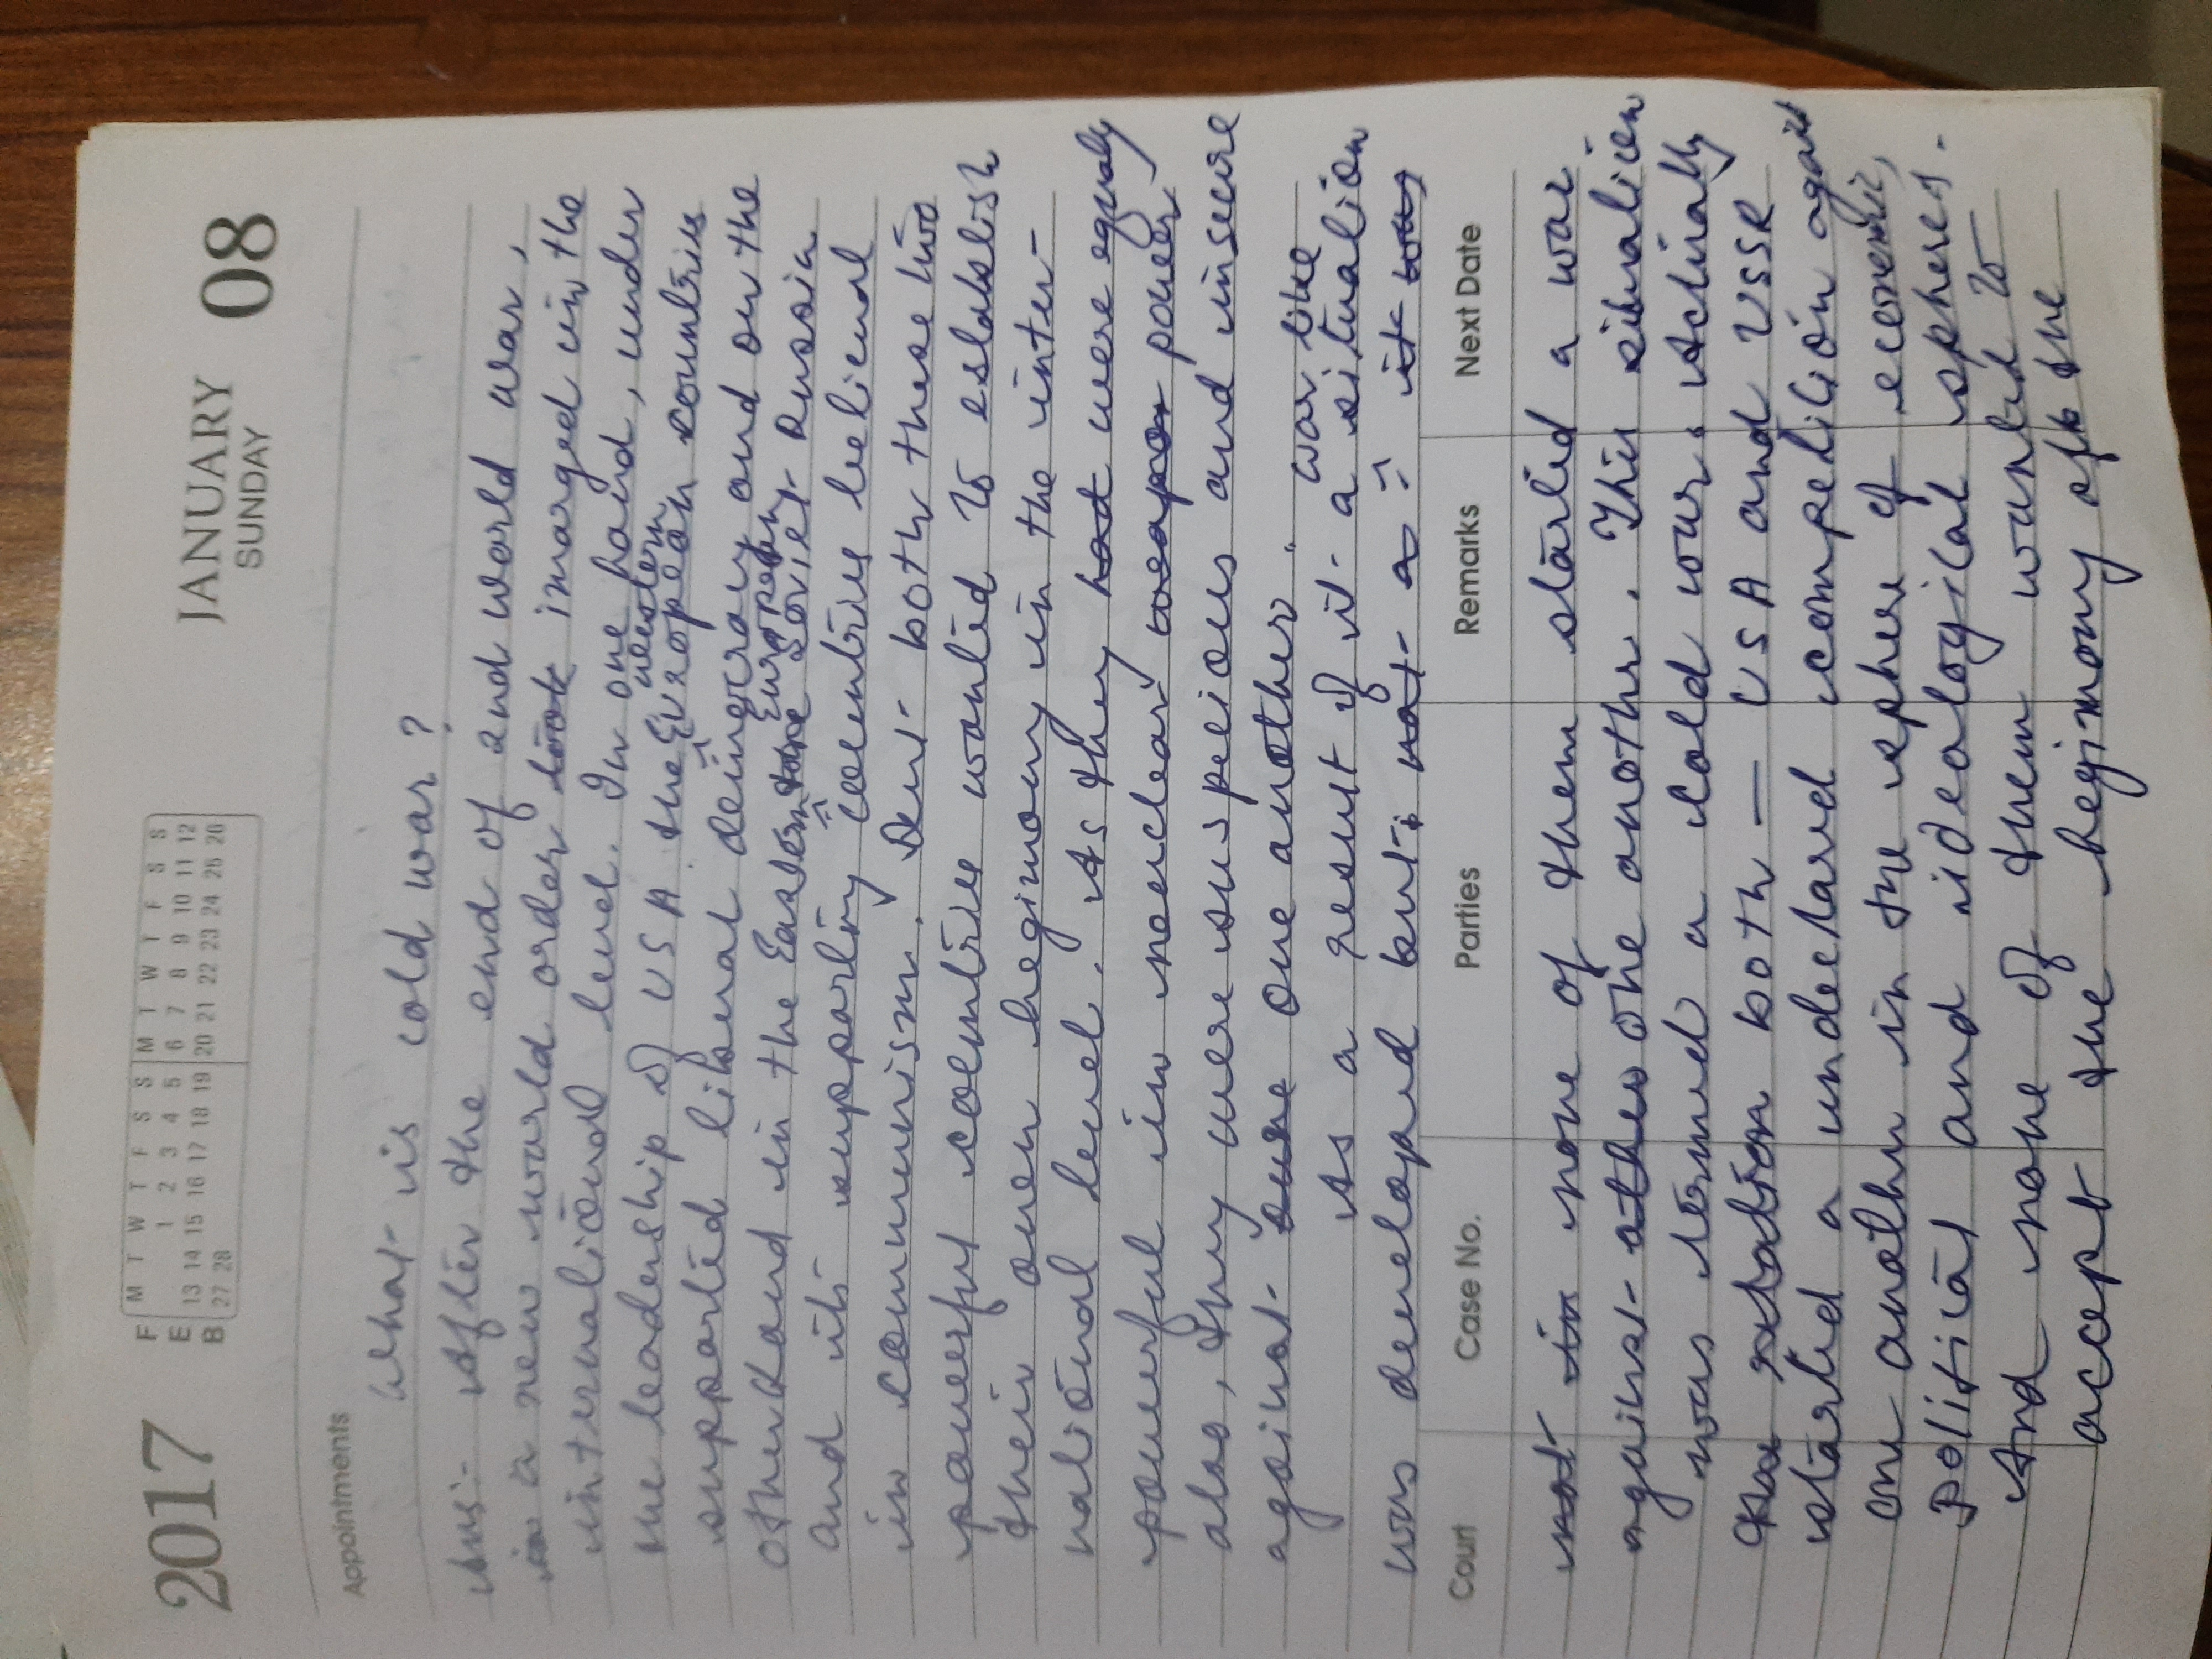 2017
F M T W T F S S M T W T F S S M T W T F S S
E 1 2 3 4 5 6 7 8 9 10 11 12
B 13 14 15 16 17 18 19 20 21 22 23 24 25 26
27 28
JANUARY 08
SUNDAY
Appointments
What is cold war?
Ans:- After the end of 2nd world war,
in a new world order took imarged in the
international level. In one hand, under
the leadership of USA the western European countries
supported liberal democracy and on the
other hand in the Eastern European the Soviet Russia
and its supporting countries believed
in communism. But both these two
powerful countries wanted to establish
their own hegimony in the inter-
national level. As they hot were equaly
powerful in neuclear weapo power
also, they were suspecious and insecure
against one another
As a result of it a war like situation
was developed but not a it was
Court Case No. Parties Remarks Next Date
not in none of them started a war
against other one another. This situation
was termed a cold war. Actually
relation both — USA and USSR
started a undeclared competition against
one another in the sphere of economic,
Political and idealogical spheres.
And none of them wanted to
accept the hegimony of the